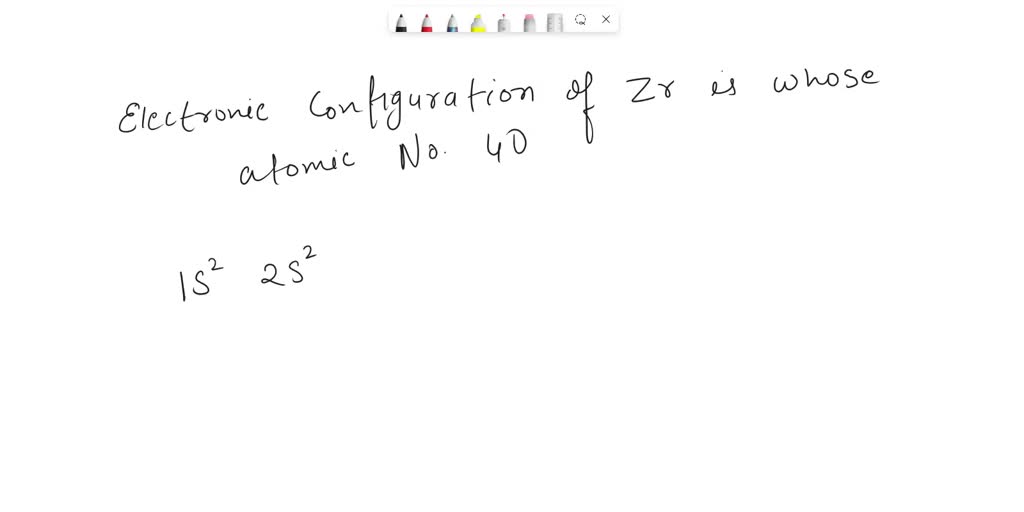 Electronic Configuration of Zr is whose
atomic No. 40
1s² 2s²